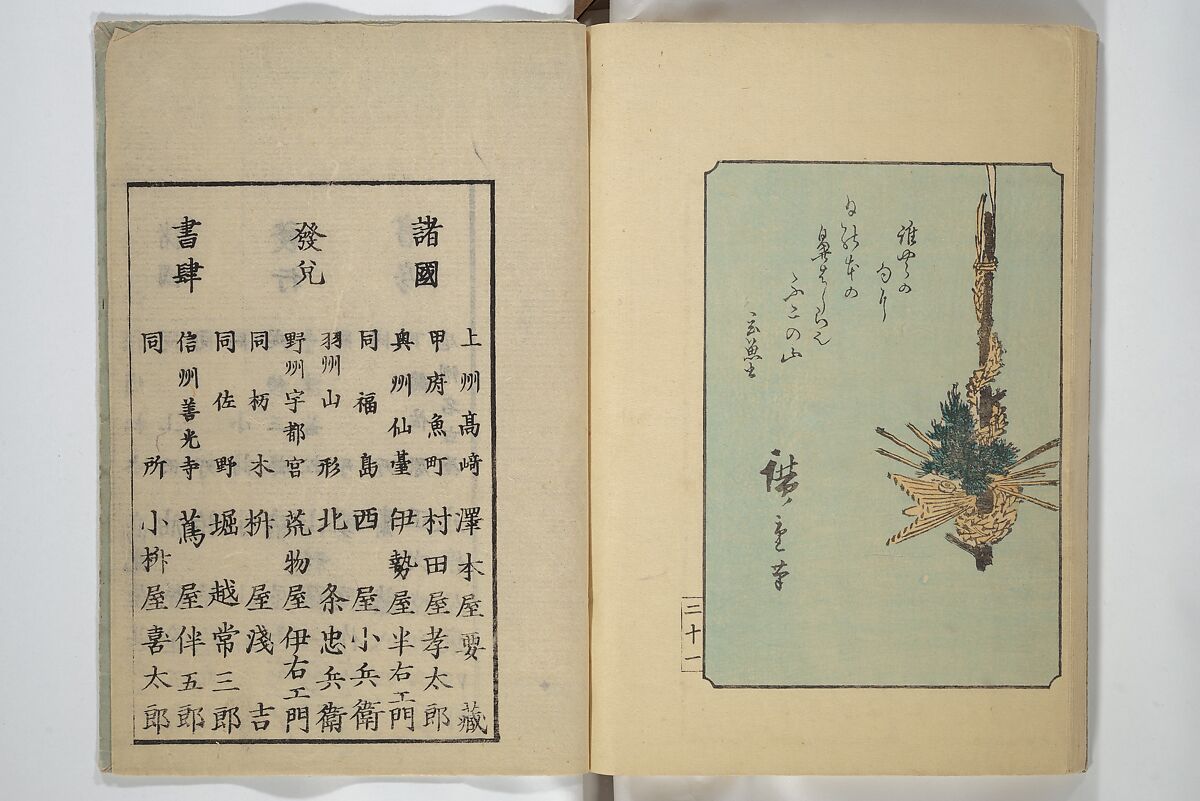 ふこの山
廣重筆
二十一
諸國
發兌
書肆
上州高﨑 澤本屋要藏
甲府魚町 村田屋孝太郎
奥州仙臺 伊勢屋半右エ門
同福島 西屋小兵衛
羽州山形 北条忠兵衛
野州宇都宮 荒物屋伊右エ門
同栃木 枡屋淺吉
同佐野 堀越常三郎
信州善光寺 蔦屋伴五郎
同所 小枡屋喜太郎